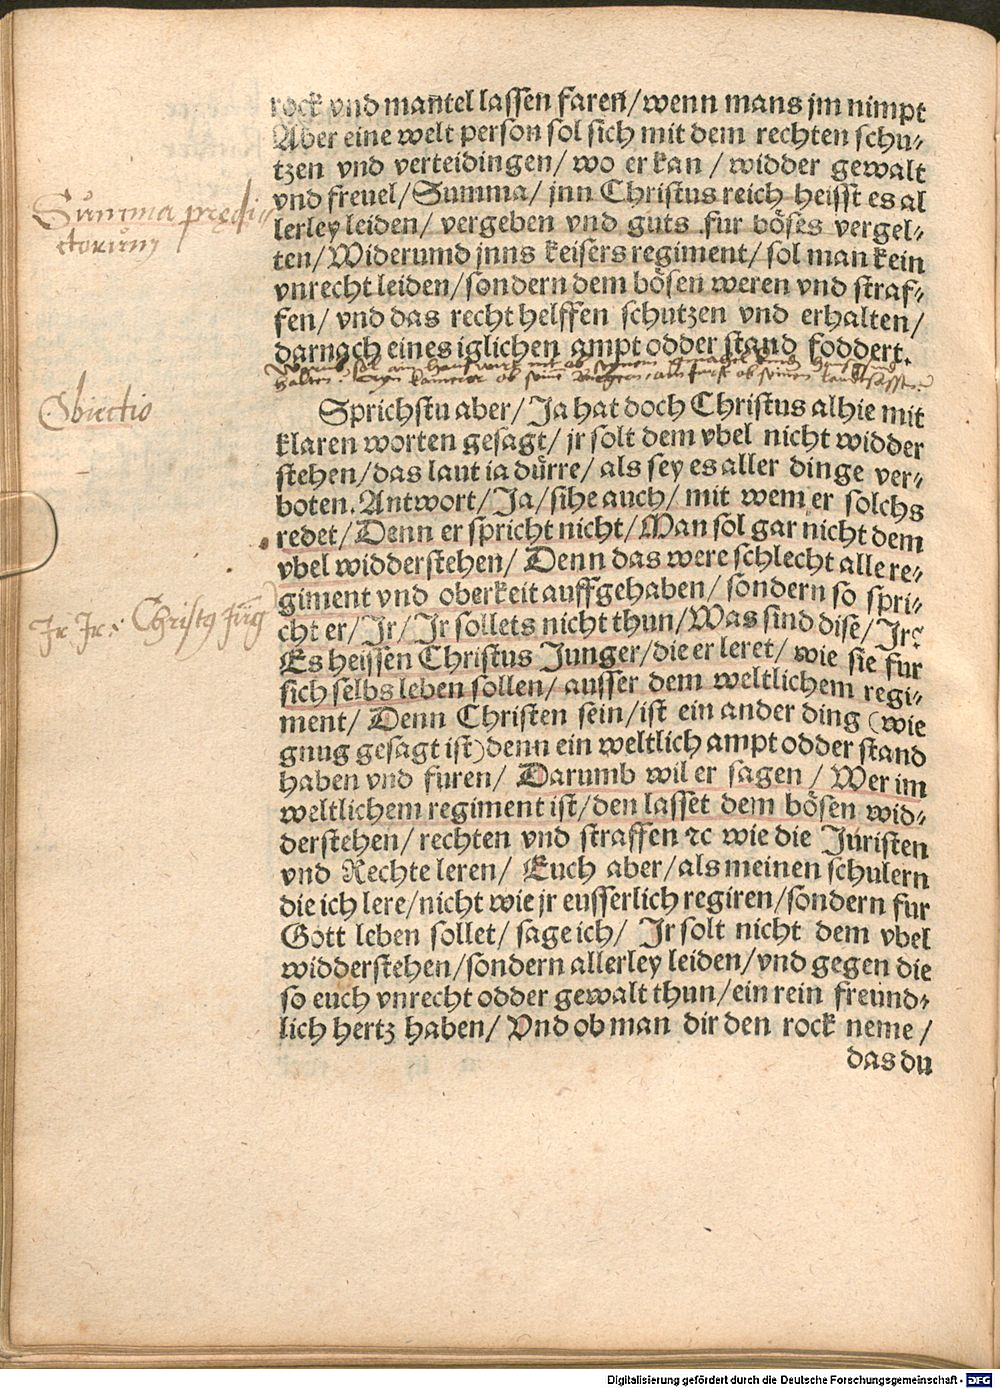 rock vnd mañtel lassen faren/wenn mans jm nimpt
Aber eine welt person sol sich mit dem rechten schu⸗
tzen vnd verteidingen/ wo er kan / widder gewalt
vnd freuel/Summa/ jnn Christus reich heisst es al
lerley leiden/ vergeben vnd guts fur böses vergel⸗
ten/Widerumd jnns keisers regiment/ sol man kein
vnrecht leiden/sondern dem bösen weren vnd straf⸗
fen/ vnd das recht helffen schutzen vnd erhalten/
darnach eines iglichen ampt odder stand foddert.
Summa prędi⸗
ctorum
halten
ob seine
Obiectio
Sprichstu aber/ Ja hat doch Christus alhie mit
klaren worten gesagt/ jr solt dem vbel nicht widder
stehen/das laut ia dürre/ als sey es aller dinge ver⸗
boten. Antwort/ Ja/sihe auch/ mit wem er solchs
redet/ Denn er spricht nicht/ Man sol gar nicht dem
vbel widderstehen/ Denn das were schlecht alle re⸗
giment vnd oberkeit auffgehaben/ sondern so spri⸗
cht er/ Jr/ Jr sollets nicht thun/ Was sind dise/ Jr?
Es heissen Christus Junger/die er leret/ wie sie fur
sich selbs leben sollen/ ausser dem weltlichem regi⸗
ment/ Denn Christen sein/ist ein ander ding (wie
gnug gesagt ist) denn ein weltlich ampt odder stand
haben vnd furen/ Darumb wil er sagen / Wer im
weltlichem regiment ist/ den lasset dem bösen wid⸗
derstehen/ rechten vnd straffen ꝛc wie die Juristen
vnd Rechte leren/ Euch aber/ als meinen schulern
die ich lere/nicht wie jr eusserlich regiren/sondern fur
Gott leben sollet/ sage ich/ Jr solt nicht dem vbel
widderstehen/sondern allerley leiden/vnd gegen die
so euch vnrecht odder gewalt thun/ein rein freund⸗
lich hertz haben/ Vnd ob man dir den rock neme /
das du
Jr Jr: Christꝰ Jüg
Digitalisierung gefördert durch die Deutsche Forschungsgemeinschaft - DFG